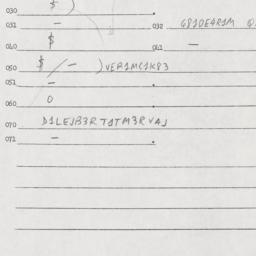 030 $ )
031 — 032 G81DE4R1M
040 $ 041 —
050 $ / — ) VER1MC1K83
051 —
060 0
070 D1LEJB3R T1TM3RVAJ
071 —